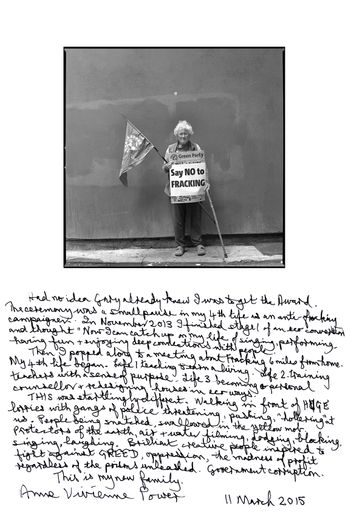 Green Party
Say NO to
FRACKING
Had no idea Gary already knew I was to get the Award.
The ceremony was a small pause in my 4th life as an anti-fracking
campaigner. In November 2013 I finished stage 1 of an eco conversion
and thought "Now I can catch up on my life of singing, performing
having fun & enjoying deep conversations with people.
Then I popped along to a meeting about Fracking 6 miles from home.
My 4th life began. Life 1 teaching & earning a living. Life 2 training
teachers with a sense of purpose. Life 3 becoming a personal
counsellor & redesigning houses in eco ways.
THIS was startlingly different. Walking in front of HUGE
lorries with gangs of police threatening, pushing, hollering at
us. People being snatched, swallowed in the yellow mob.
Protectors of the earth, air & water filming, dodging, blocking,
singing, laughing. Brilliant creative people inspired to
fight against GREED, oppression, the madness of profit
regardless of the poisons unleashed. Government corruption.
This is my new family.
Anne Vivienne Power
11 March 2015